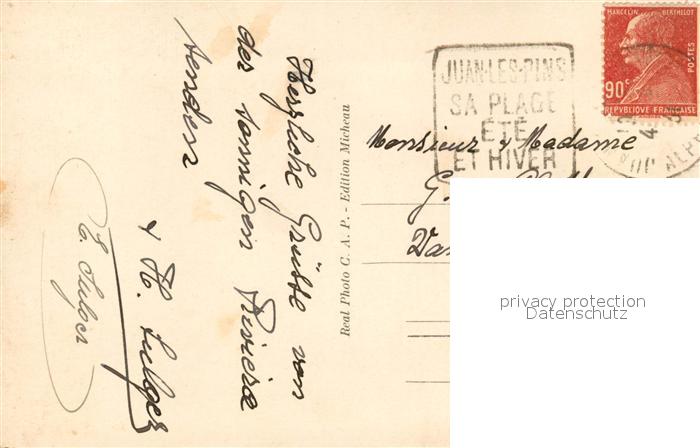 Herzliche Grüsse von
der sonnigen Riviera
senden
& H. Sulger
E. Sulger
Real Photo C. A. P. - Edition Micheau
JUAN-LES-PINS
SA PLAGE
ÉTÉ
ET HIVER
MARCELIN BERTHELOT
POSTES
90c
REPVBLIQVE FRANÇAISE
Monsieur & Madame
G.
privacy protection
Datenschutz